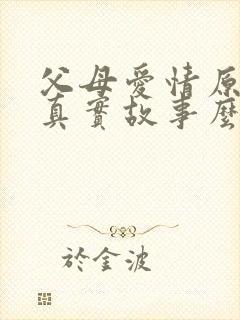 父母愛情原
真實故事麼
於金波